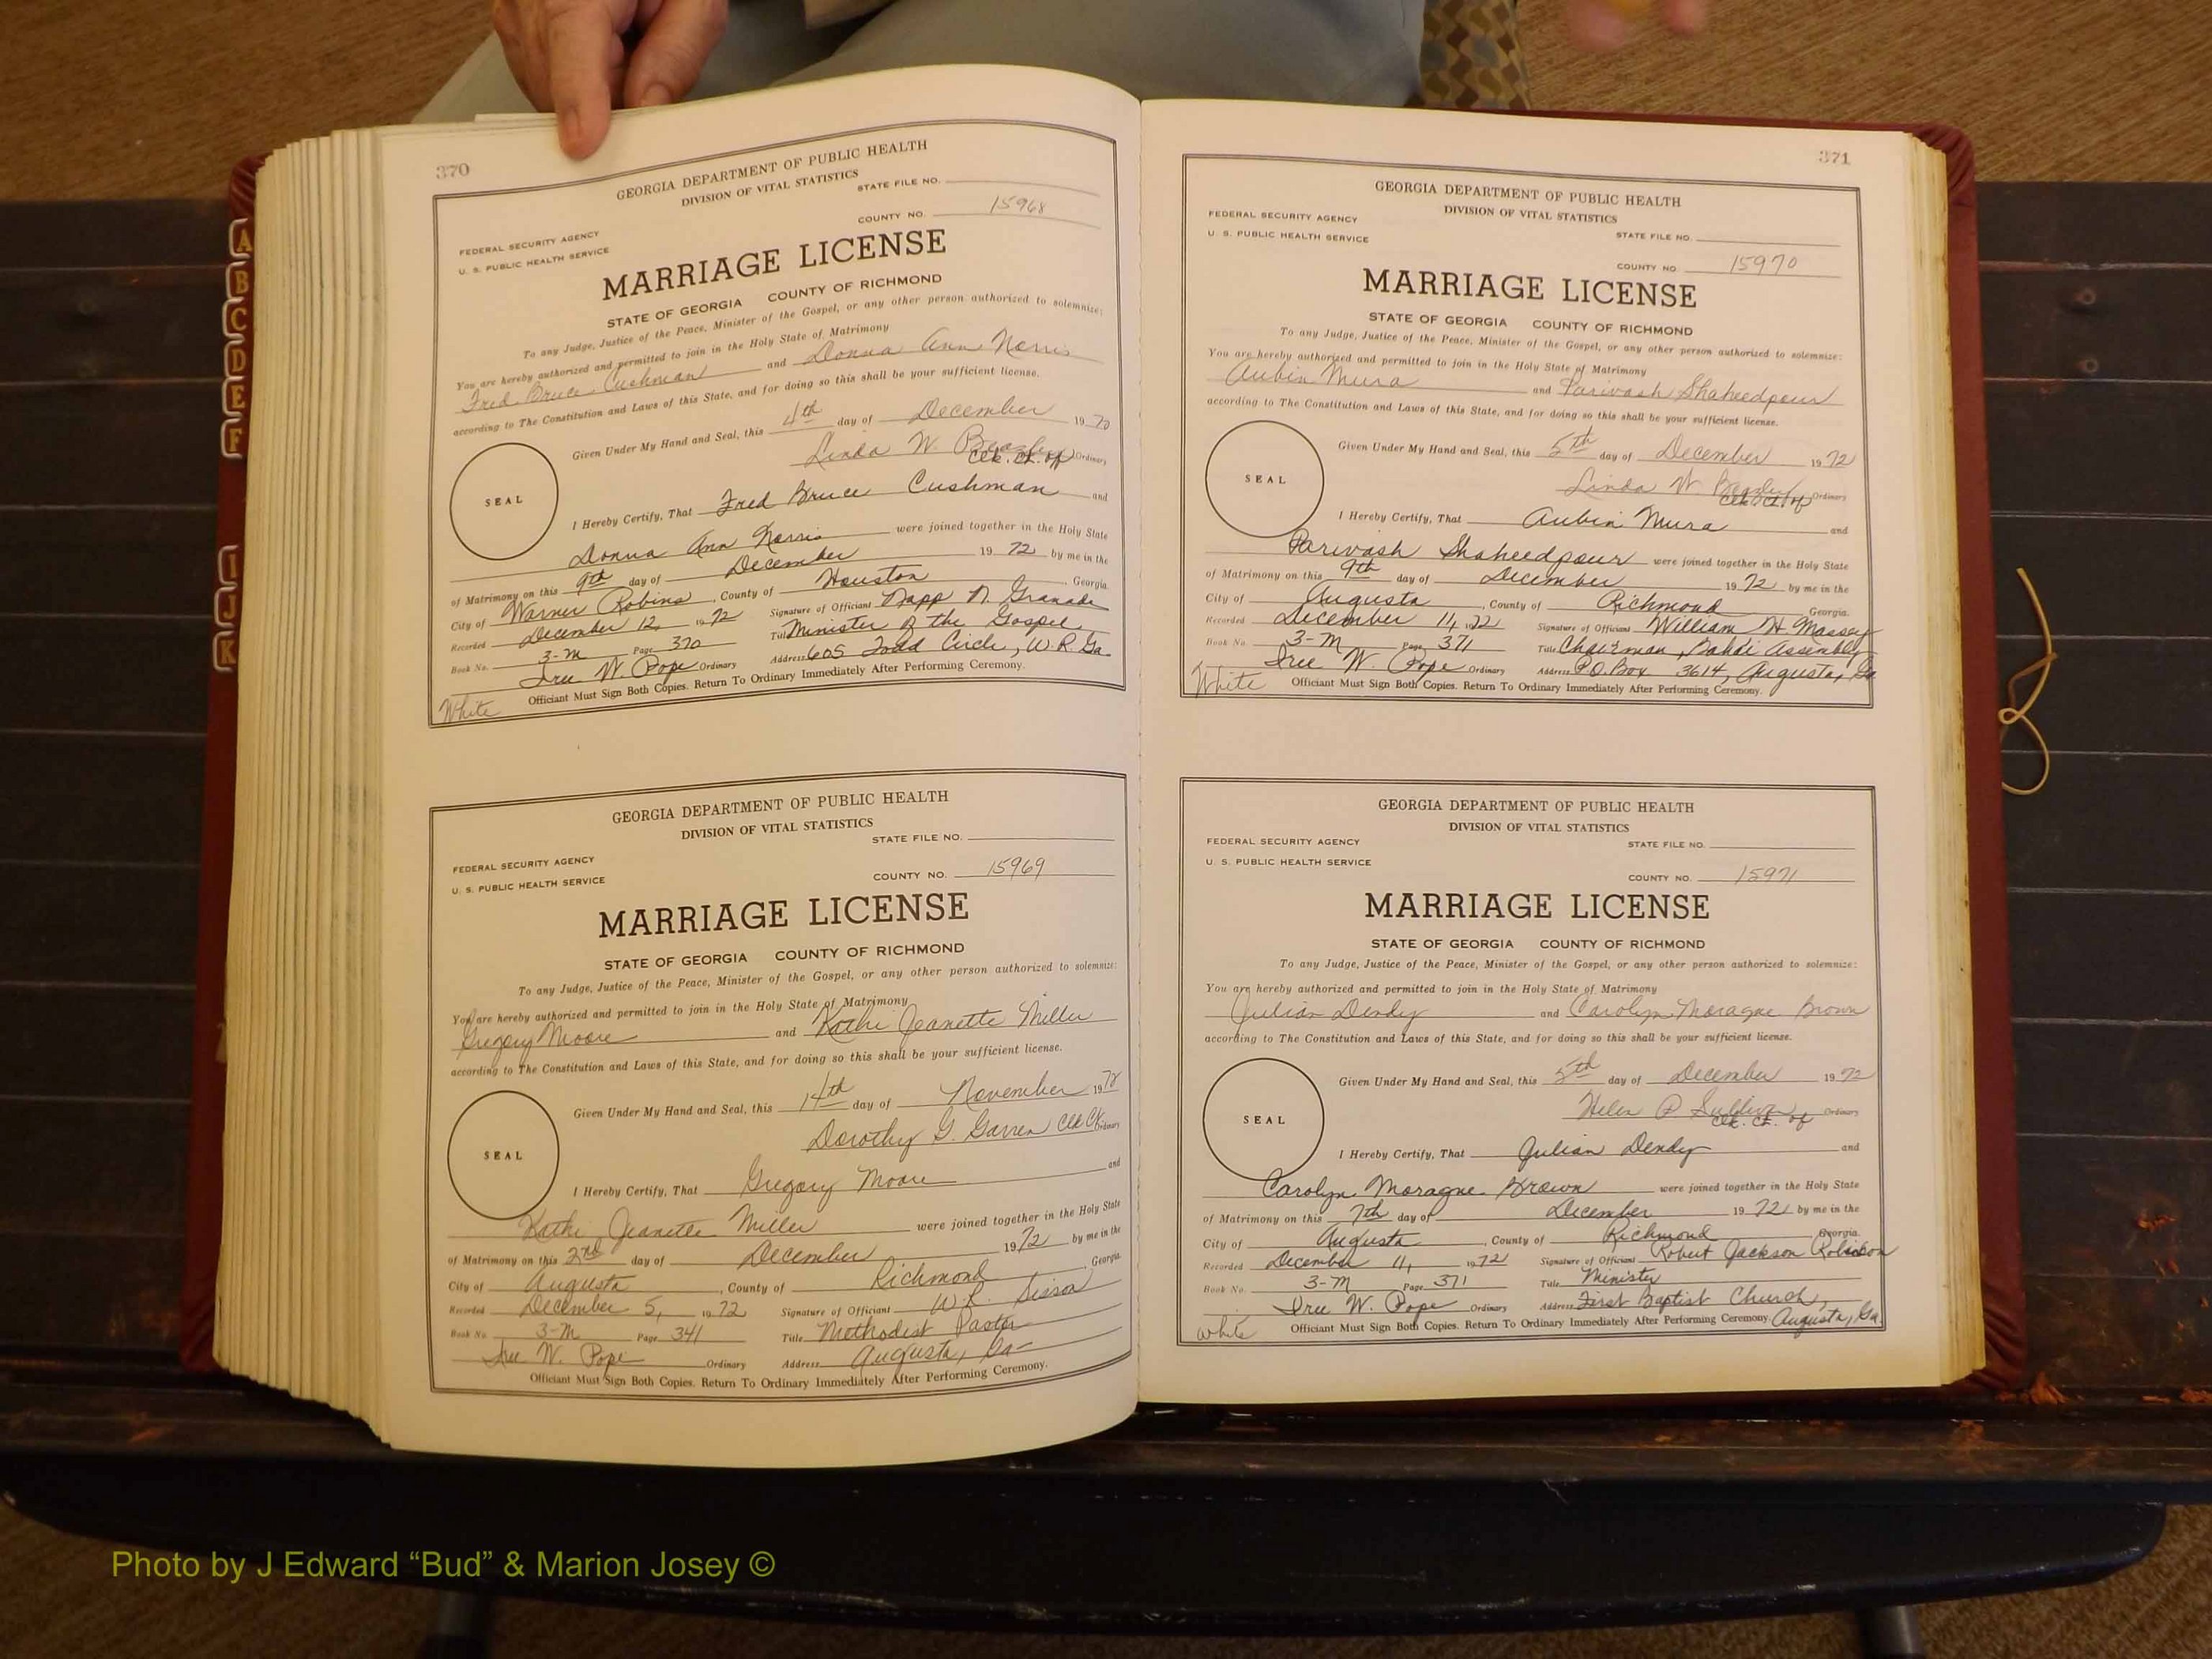 370
GEORGIA DEPARTMENT OF PUBLIC HEALTH
DIVISION OF VITAL STATISTICS
STATE FILE NO.
COUNTY NO. 15968
FEDERAL SECURITY AGENCY
U. S. PUBLIC HEALTH SERVICE
MARRIAGE LICENSE
STATE OF GEORGIA COUNTY OF RICHMOND
To any Judge, Justice of the Peace, Minister of the Gospel, or any other person authorized to solemnize:
You are hereby authorized and permitted to join in the Holy State of Matrimony
Fred Bruce Cushman and Donna Ann Norris
according to The Constitution and Laws of this State, and for doing so this shall be your sufficient license.
Given Under My Hand and Seal, this 4th day of December 1972
Linda W. Beazley Clk. Ct. of Ordinary
SEAL
I Hereby Certify, That Fred Bruce Cushman and
Donna Ann Norris were joined together in the Holy State
of Matrimony on this 9th day of December 1972 by me in the
City of Warner Robins, County of Houston, Georgia.
Recorded December 12, 1972 Signature of Official Napp N. Granade
Book No. 3-M Page 370 Title Minister of the Gospel
Iree W. Pope Ordinary Address 605 Todd Circle, W.R. Ga.
Officiant Must Sign Both Copies. Return To Ordinary Immediately After Performing Ceremony.
White
GEORGIA DEPARTMENT OF PUBLIC HEALTH
DIVISION OF VITAL STATISTICS
STATE FILE NO.
COUNTY NO. 15969
FEDERAL SECURITY AGENCY
U. S. PUBLIC HEALTH SERVICE
MARRIAGE LICENSE
STATE OF GEORGIA COUNTY OF RICHMOND
To any Judge, Justice of the Peace, Minister of the Gospel, or any other person authorized to solemnize:
You are hereby authorized and permitted to join in the Holy State of Matrimony
Gregory Moore and Kathi Jeanette Miller
according to The Constitution and Laws of this State, and for doing so this shall be your sufficient license.
Given Under My Hand and Seal, this 14th day of November 1972
Dorothy G. Garren Clk Ct. Ordinary
SEAL
I Hereby Certify, That Gregory Moore and
Kathi Jeanette Miller were joined together in the Holy State
of Matrimony on this 2nd day of December 1972 by me in the
City of Augusta, County of Richmond, Georgia
Recorded December 5, 1972 Signature of Official W. R. Sisson
Book No. 3-M Page 341 Title Methodist Pastor
Iree W. Pope Ordinary Address Augusta, Ga-
Officiant Must Sign Both Copies. Return To Ordinary Immediately After Performing Ceremony.
371
GEORGIA DEPARTMENT OF PUBLIC HEALTH
DIVISION OF VITAL STATISTICS
FEDERAL SECURITY AGENCY
U. S. PUBLIC HEALTH SERVICE
STATE FILE NO.
COUNTY NO 15970
MARRIAGE LICENSE
STATE OF GEORGIA COUNTY OF RICHMOND
To any Judge, Justice of the Peace, Minister of the Gospel, or any other person authorized to solemnize:
You are hereby authorized and permitted to join in the Holy State of Matrimony
Aubin Mura and Parivash Shaheedpour
according to The Constitution and Laws of this State, and for doing so this shall be your sufficient license.
Given Under My Hand and Seal, this 5th day of December 1972
Linda W. Beazley Clk. Ct. of Ordinary
SEAL
I Hereby Certify, That Aubin Mura and
Parivash Shaheedpour were joined together in the Holy State
of Matrimony on this 9th day of December 1972 by me in the
City of Augusta, County of Richmond Georgia.
Recorded December 11, 1972 Signature of Official William H. Massey
Book No 3-M Page 371 Title Chairman, Bahai Assembly
Iree W. Pope Ordinary Address P.O. Box 3614, Augusta, Ga
White Officiant Must Sign Both Copies. Return To Ordinary Immediately After Performing Ceremony.
GEORGIA DEPARTMENT OF PUBLIC HEALTH
DIVISION OF VITAL STATISTICS
FEDERAL SECURITY AGENCY
U. S. PUBLIC HEALTH SERVICE
STATE FILE NO.
COUNTY NO. 15971
MARRIAGE LICENSE
STATE OF GEORGIA COUNTY OF RICHMOND
To any Judge, Justice of the Peace, Minister of the Gospel, or any other person authorized to solemnize:
You are hereby authorized and permitted to join in the Holy State of Matrimony
Julian Dendy and Carolyn Moragne Brown
according to The Constitution and Laws of this State, and for doing so this shall be your sufficient license.
Given Under My Hand and Seal, this 5th day of December 1972
Helen P Sullivan Clk. Ct. of Ordinary
SEAL
I Hereby Certify, That Julian Dendy and
Carolyn Moragne Brown were joined together in the Holy State
of Matrimony on this 7th day of December 1972 by me in the
City of Augusta, County of Richmond Georgia.
Recorded December 11, 1972 Signature of Official Robert Jackson Robinson
Book No. 3-M Page 371 Title Minister
Iree W. Pope Ordinary Address First Baptist Church,
white Officiant Must Sign Both Copies. Return To Ordinary Immediately After Performing Ceremony. Augusta, Ga.
A
B
C
D
E
F
I
J
K
Photo by J Edward “Bud” & Marion Josey ©